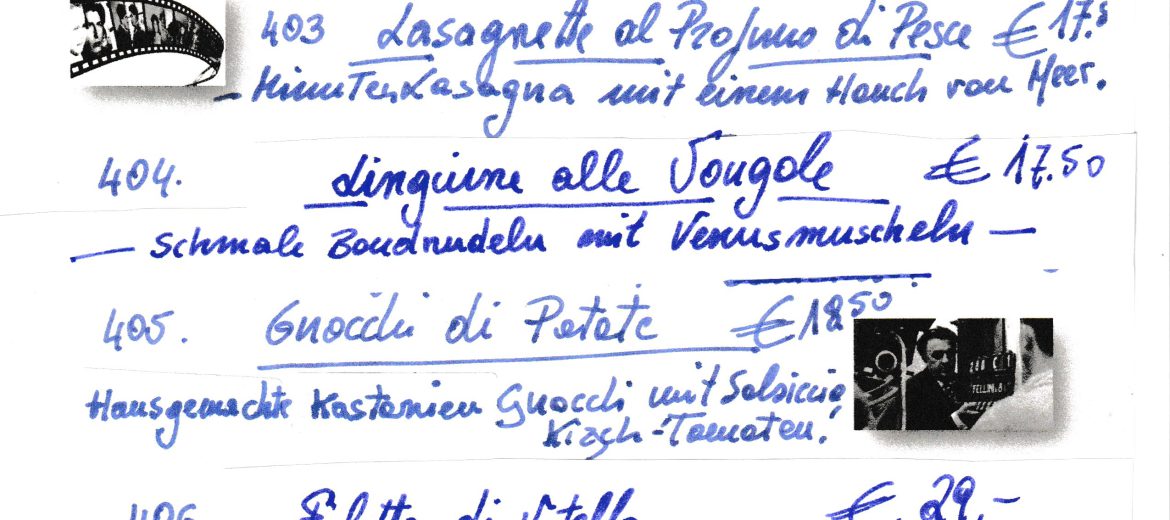 403 Lasagnette al Profumo di Pesce € 17.
– MinutenLasagna mit einem Hauch von Meer.
404. Linguine alle Vongole € 17.50
— Schmale Bandnudeln mit Venusmuscheln —
405. Gnocchi di Patate € 18.50
Hausgemachte Kastanien Gnocchi mit Salsiccia
Kirsch-Tomaten!
FELLINI
406 Filetto di Vitello € 29,–